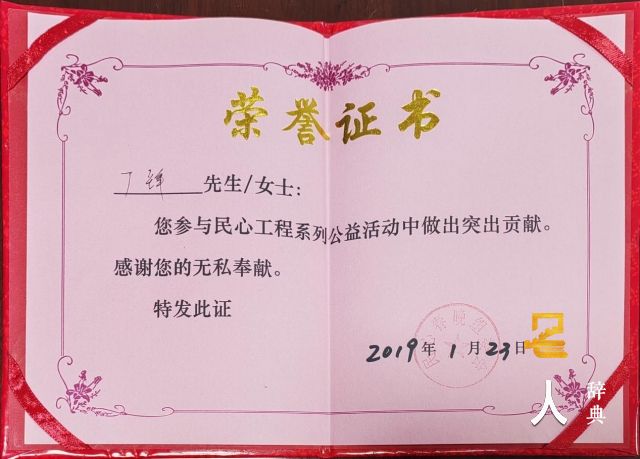 荣誉证书
丁 先生/女士:
您参与民心工程系列公益活动中做出突出贡献。
感谢您的无私奉献。
特发此证
2019年1月23日
人 辞典